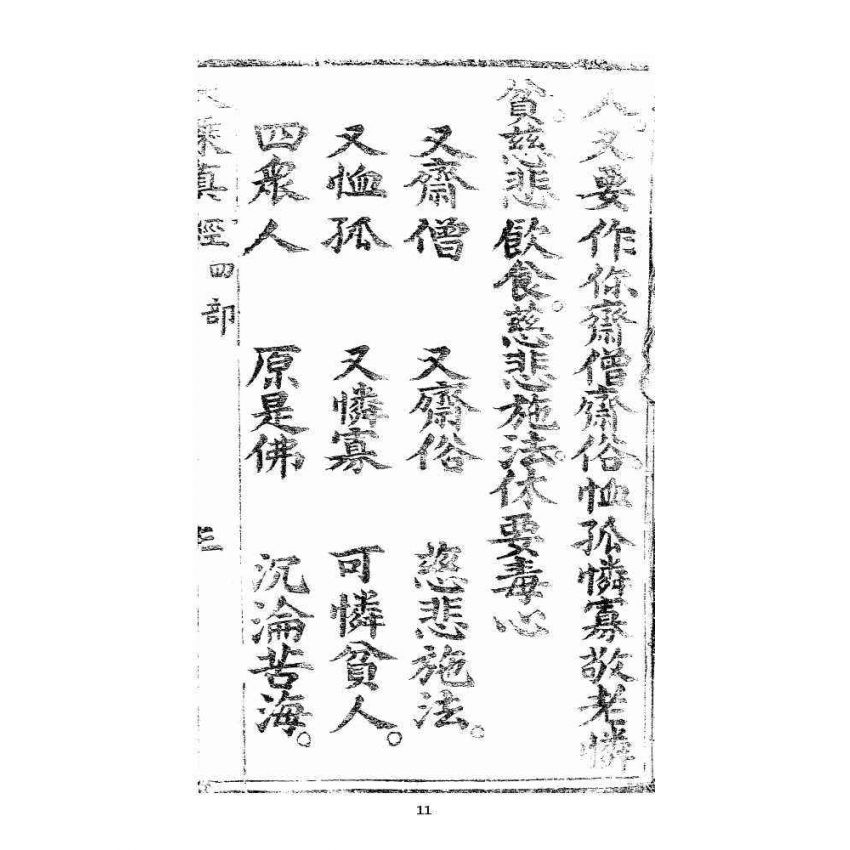 人又要作你齋僧齋俗。恤孤憐寡敬老憐
貧。慈悲飲食。慈悲施法。休要毒心
又齋僧　又齋俗　慈悲施法。
又恤孤　又憐寡　可憐貧人。
四衆人　原是佛　沉淪苦海。
乘真經四部
11